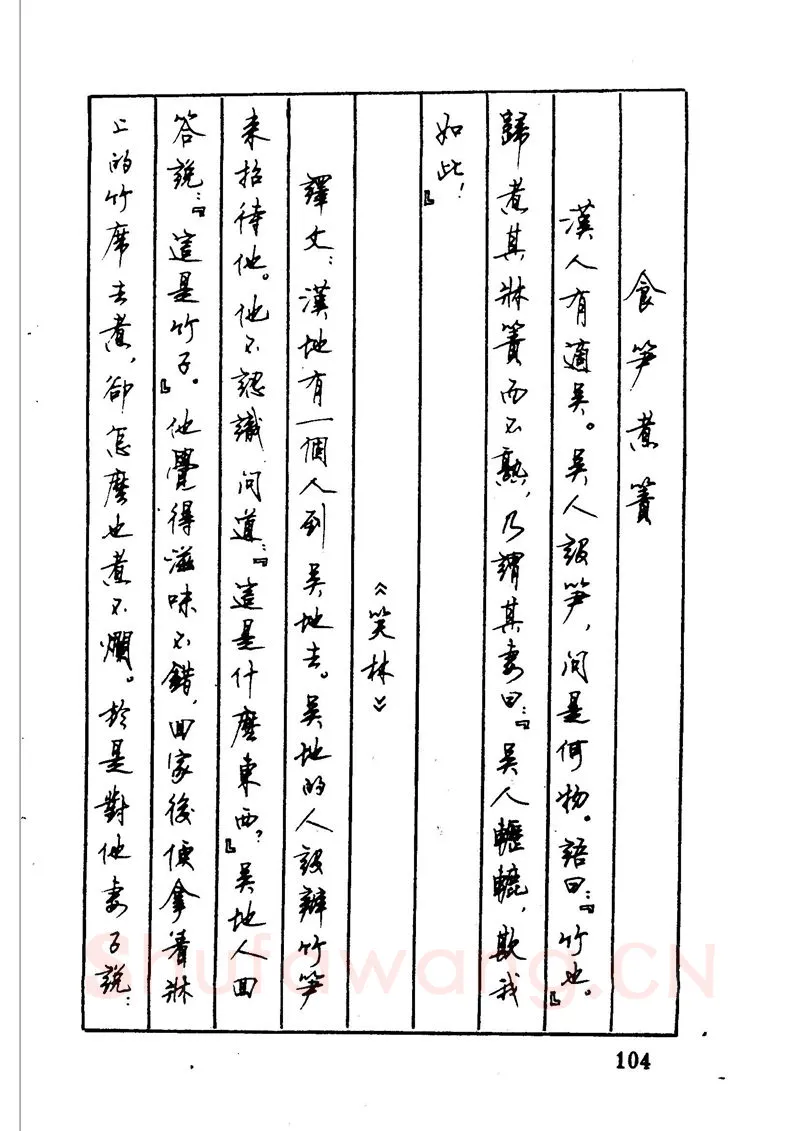 食笋煮簀
漢人有適吳。吳人設笋,問是何物。語曰:『竹也。』
歸煮其牀簀而不熟,乃謂其妻曰:『吳人轣轆,欺我
如此!』
《笑林》
譯文:漢地有一個人到吳地去。吳地的人設辦竹笋
来招待他。他不認識問道:『這是什麼東西?』吳地人回
答說:『這是竹子。』他覺得滋味不錯,回家後便拿着牀
上的竹席去煮,卻怎麼也煮不爛。於是對他妻子說:
104
Shufawang.CN